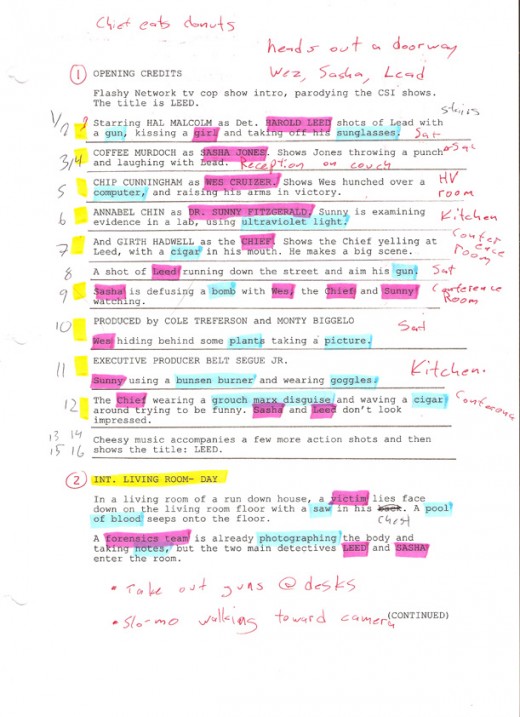 Chief eats donuts
heads out a doorway
Wez, Sasha, Lead
1 OPENING CREDITS
Flashy Network tv cop show intro, parodying the CSI shows.
The title is LEED.
stairs
1/2 Starring HAL MALCOLM as Det. HAROLD LEED shots of Lead with
a gun, kissing a girl and taking off his sunglasses. Sat
3/4 COFFEE MURDOCH as SASHA JONES. Shows Jones throwing a punch
and laughing with Lead. Reception on couch
5 CHIP CUNNINGHAM as WES CRUIZER. Shows Wes hunched over a HV
computer, and raising his arms in victory. room
6 ANNABEL CHIN as DR. SUNNY FITZGERALD. Sunny is examining Kitchen
evidence in a lab, using ultraviolet light.
7 And GIRTH HADWELL as the CHIEF. Shows the Chief yelling at Confer ence
Leed, with a cigar in his mouth. He makes a big scene. room
8 A shot of Leed running down the street and aim his gun. Sat
9 Sasha is defusing a bomb with Wes, the Chief and Sunny Conference
watching. Room
10 PRODUCED by COLE TREFERSON and MONTY BIGGELO
Sat
Wes hiding behind some plants taking a picture.
11 EXECUTIVE PRODUCER BELT SEGUE JR.
Kitchen.
Sunny using a bunsen burner and wearing goggles.
12 The Chief wearing a grouch marx disguise and waving a cigar
around trying to be funny. Sasha and Leed don't look
impressed.
13 14
15 16 Cheesy music accompanies a few more action shots and then
shows the title: LEED.
2 INT. LIVING ROOM- DAY
In a living room of a run down house, a victim lies face
down on the living room floor with a saw in his back. A pool
chest
of blood seeps onto the floor.
A forensics team is already photographing the body and
taking notes, but the two main detectives LEED and SASHA
enter the room.
• Take out guns @ desks
• Slo-mo walking toward camera
(CONTINUED)